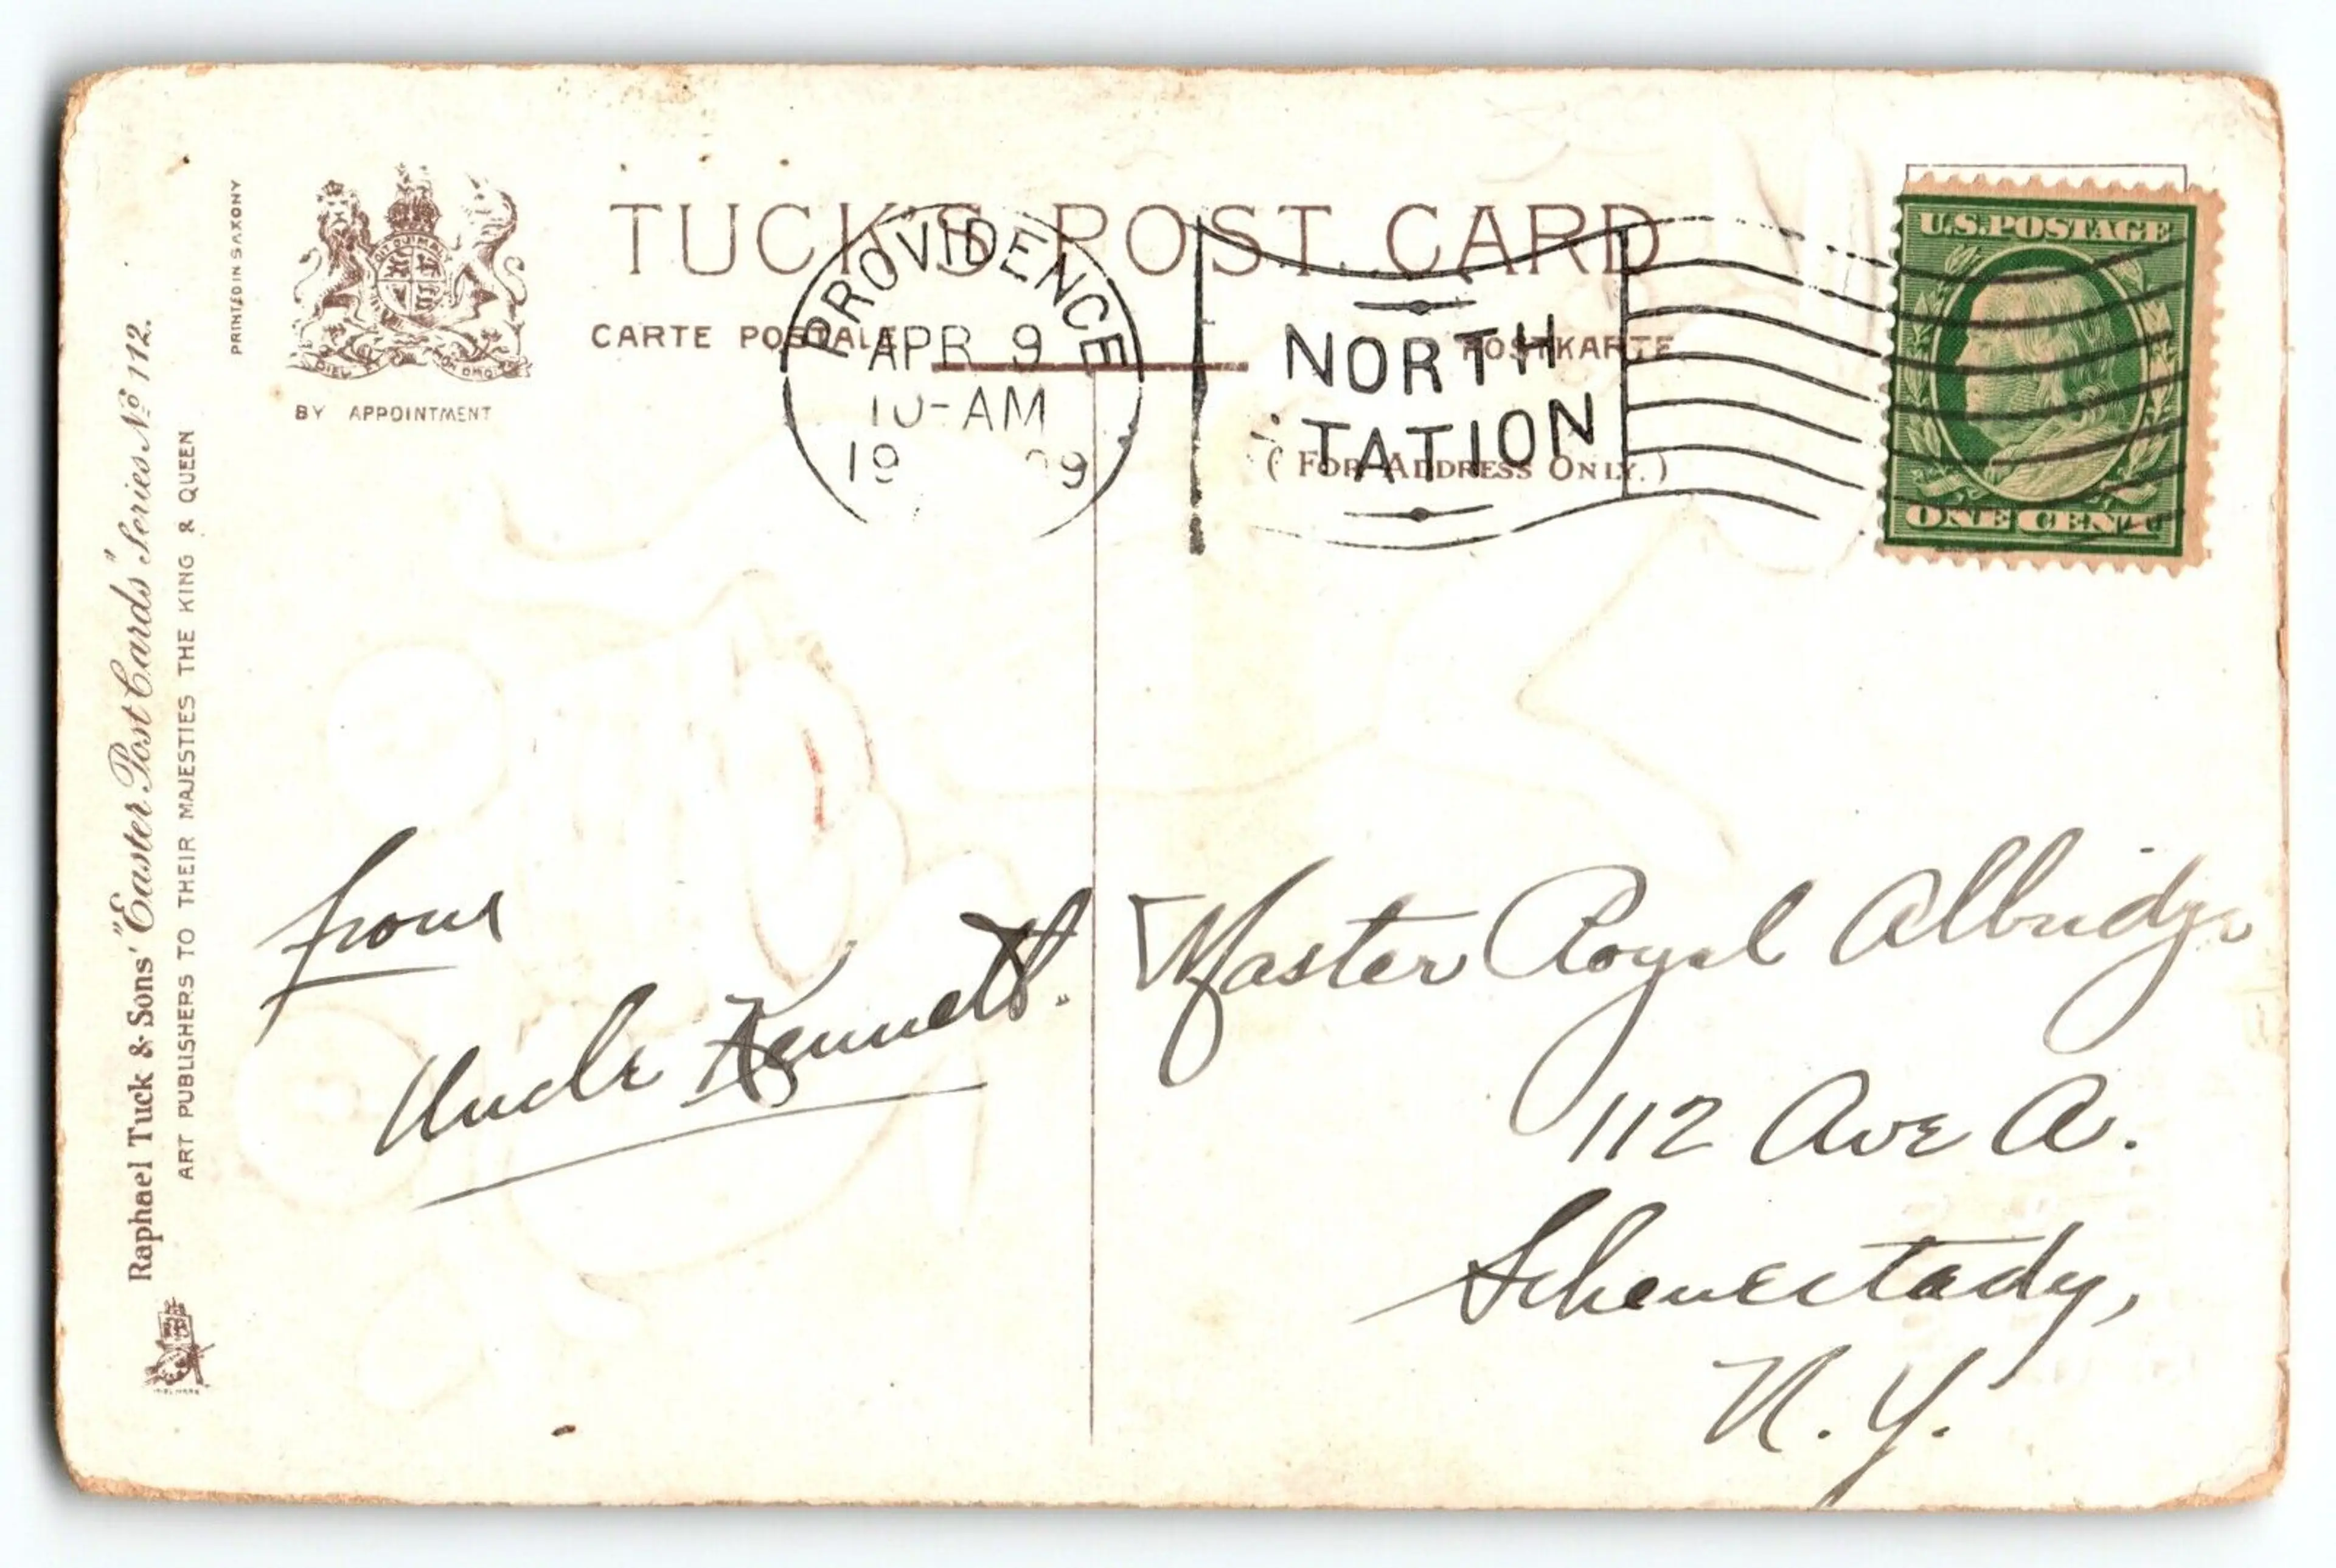 PRINTED IN SAXONY
BY APPOINTMENT
TUCK'S POST CARD
CARTE POSTALE
POSTKARTE
(FOR ADDRESS ONLY.)
PROVIDENCE
APR 9
10-AM
19 09
NORTH
TATION
U.S. POSTAGE
ONE CENT
Raphael Tuck & Sons' "Easter Post Cards" Series No 112.
ART PUBLISHERS TO THEIR MAJESTIES THE KING & QUEEN
from
Uncle Kenneth.
Master Royal Albridge
112 Ave A.
Schenectady,
N.Y.